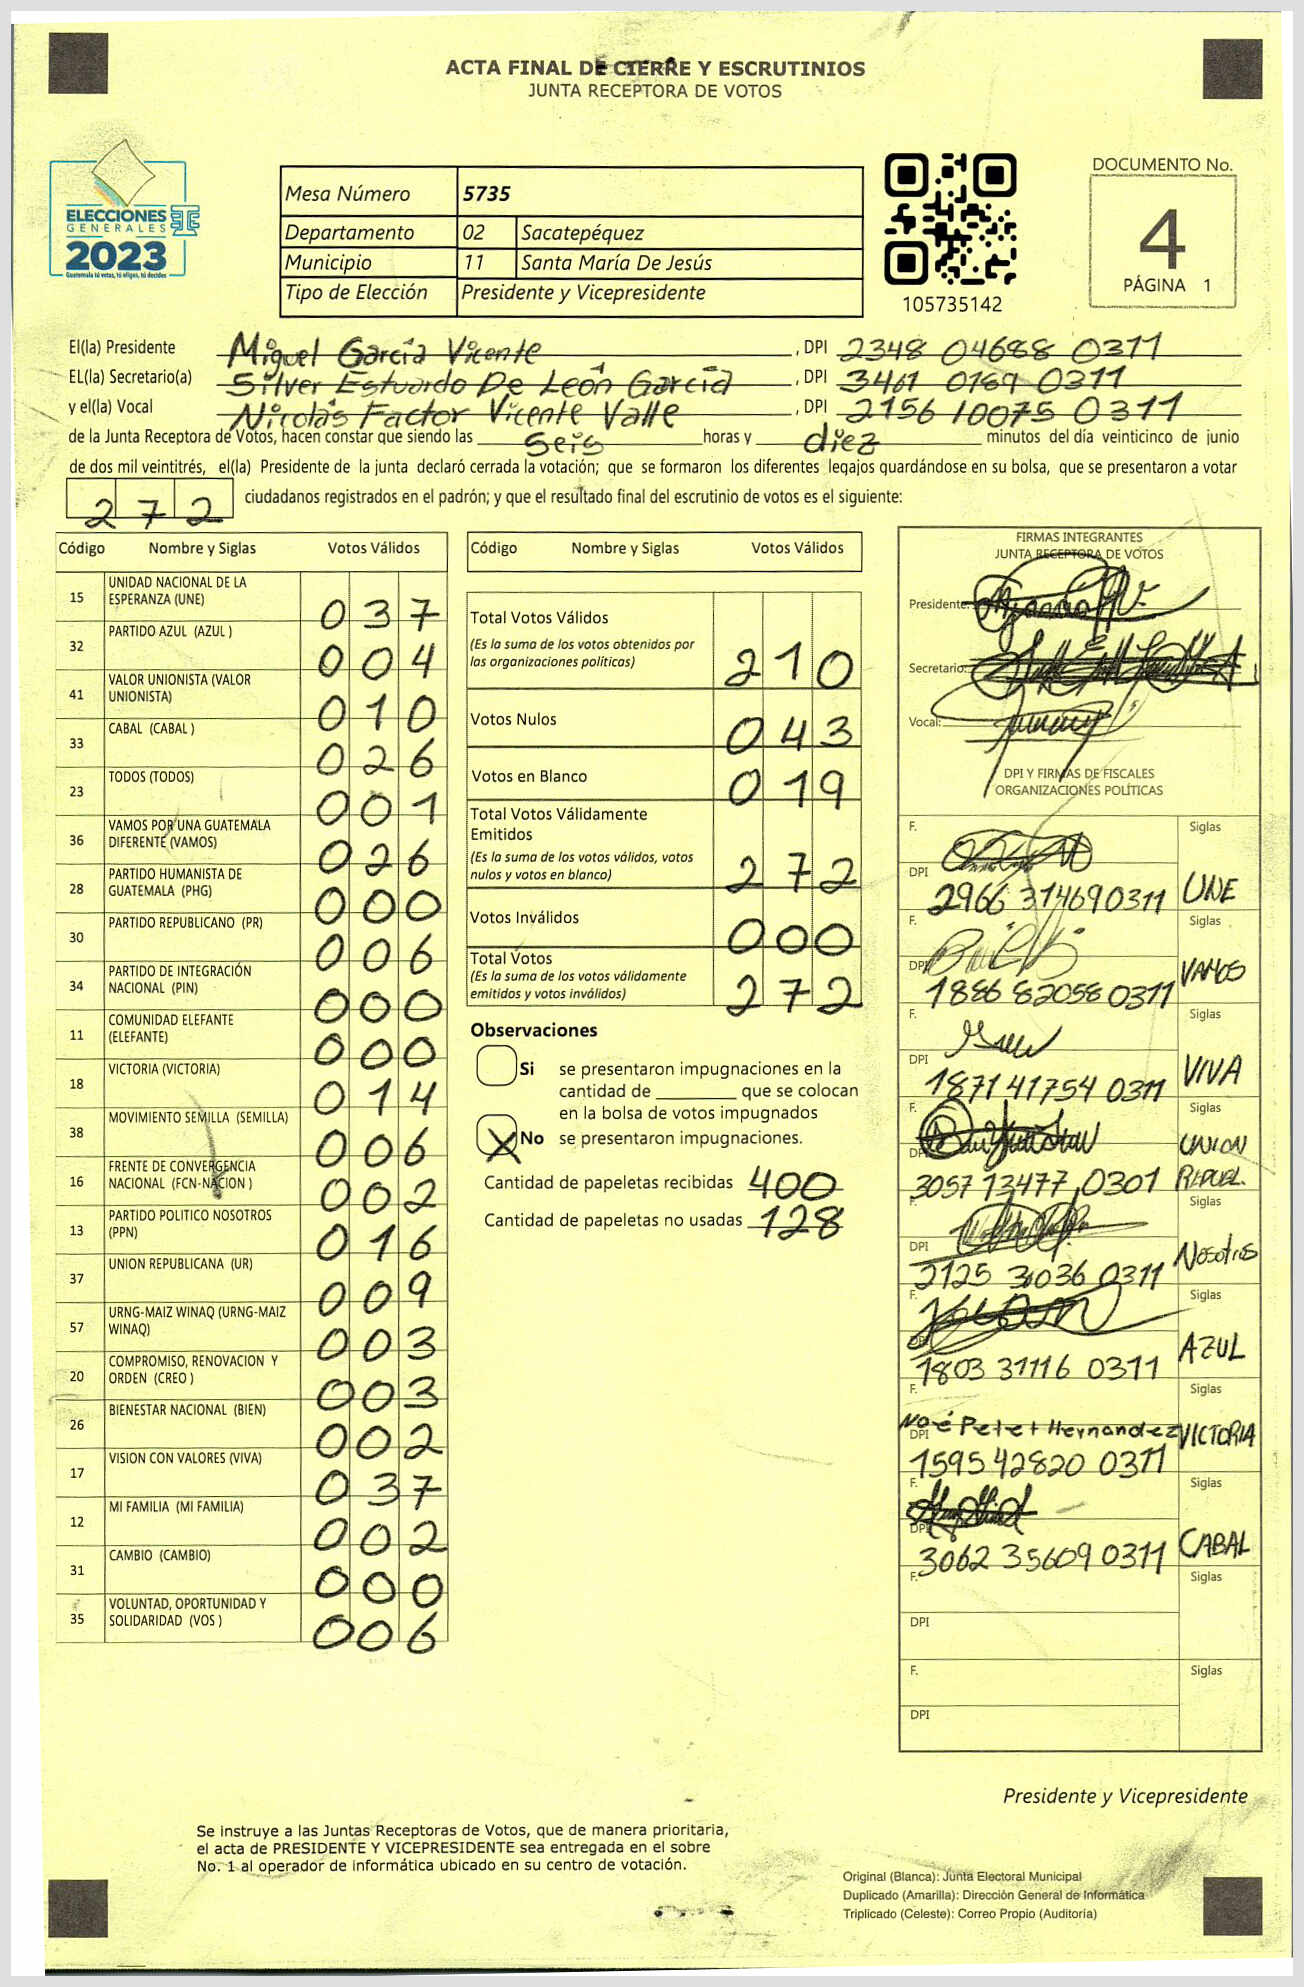 ACTA FINAL DE CIERRE Y ESCRUTINIOS
JUNTA RECEPTORA DE VOTOS
ELECCIONES
GENERALES
2023
Guatemala tú votas, tú eliges, tú decides
Mesa Número 5735
Departamento 02 Sacatepéquez
Municipio 11 Santa María De Jesús
Tipo de Elección Presidente y Vicepresidente
105735142
DOCUMENTO No.
4
PÁGINA 1
El(la) Presidente Miguel García Vicente, DPI 2348 04688 0311
EL(la) Secretario(a) Silver Estuardo De León García, DPI 3461 0189 0311
y el(la) Vocal Nicolás Factor Vicente Valle, DPI 2156 10075 0311
de la Junta Receptora de Votos, hacen constar que siendo las seis horas y diez minutos del día veinticinco de junio
de dos mil veintitrés, el(la) Presidente de la junta declaró cerrada la votación; que se formaron los diferentes legajos quardándose en su bolsa, que se presentaron a votar
272 ciudadanos registrados en el padrón; y que el resultado final del escrutinio de votos es el siguiente:
Código Nombre y Siglas Votos Válidos
15 UNIDAD NACIONAL DE LA ESPERANZA (UNE) 037
32 PARTIDO AZUL (AZUL ) 004
41 VALOR UNIONISTA (VALOR UNIONISTA) 010
33 CABAL (CABAL ) 026
23 TODOS (TODOS) 001
36 VAMOS POR UNA GUATEMALA DIFERENTE (VAMOS) 026
28 PARTIDO HUMANISTA DE GUATEMALA (PHG) 000
30 PARTIDO REPUBLICANO (PR) 006
34 PARTIDO DE INTEGRACIÓN NACIONAL (PIN) 000
11 COMUNIDAD ELEFANTE (ELEFANTE) 000
18 VICTORIA (VICTORIA) 014
38 MOVIMIENTO SEMILLA (SEMILLA) 006
16 FRENTE DE CONVERGENCIA NACIONAL (FCN-NACION ) 002
13 PARTIDO POLITICO NOSOTROS (PPN) 016
37 UNION REPUBLICANA (UR) 009
57 URNG-MAIZ WINAQ (URNG-MAIZ WINAQ) 003
20 COMPROMISO, RENOVACION Y ORDEN (CREO ) 003
26 BIENESTAR NACIONAL (BIEN) 002
17 VISION CON VALORES (VIVA) 037
12 MI FAMILIA (MI FAMILIA) 002
31 CAMBIO (CAMBIO) 000
35 VOLUNTAD, OPORTUNIDAD Y SOLIDARIDAD (VOS ) 006
Código Nombre y Siglas Votos Válidos
Total Votos Válidos
(Es la suma de los votos obtenidos por
las organizaciones políticas) 210
Votos Nulos 043
Votos en Blanco 019
Total Votos Válidamente
Emitidos
(Es la suma de los votos válidos, votos
nulos y votos en blanco) 272
Votos Inválidos 000
Total Votos
(Es la suma de los votos válidamente
emitidos y votos inválidos) 272
Observaciones
Si se presentaron impugnaciones en la
cantidad de ________ que se colocan
en la bolsa de votos impugnados
X No se presentaron impugnaciones.
Cantidad de papeletas recibidas 400
Cantidad de papeletas no usadas 128
FIRMAS INTEGRANTES
JUNTA RECEPTORA DE VOTOS
Presidente:
Secretario:
Vocal:
DPI Y FIRMAS DE FISCALES
ORGANIZACIONES POLÍTICAS
F. Siglas
DPI 2966 31469 0311 UNE
F. Siglas
DPI 1886 82058 0311 VAMOS
F. Siglas
DPI 1871 41754 0311 VIVA
F. Siglas
DPI 3057 13477 0301 UNION REPUBL.
F. Siglas
DPI 2125 30036 0311 Nosotros
F. Siglas
DPI 1803 31116 0311 AZUL
F. Noé Petet Hernandez Siglas
DPI 1595 42820 0311 VICTORIA
F. Siglas
DPI 3062 35609 0311 CABAL
F. Siglas
DPI
F. Siglas
DPI
Presidente y Vicepresidente
Se instruye a las Juntas Receptoras de Votos, que de manera prioritaria,
el acta de PRESIDENTE Y VICEPRESIDENTE sea entregada en el sobre
No. 1 al operador de informática ubicado en su centro de votación.
Original (Blanca): Junta Electoral Municipal
Duplicado (Amarilla): Dirección General de Informática
Triplicado (Celeste): Correo Propio (Auditoría)